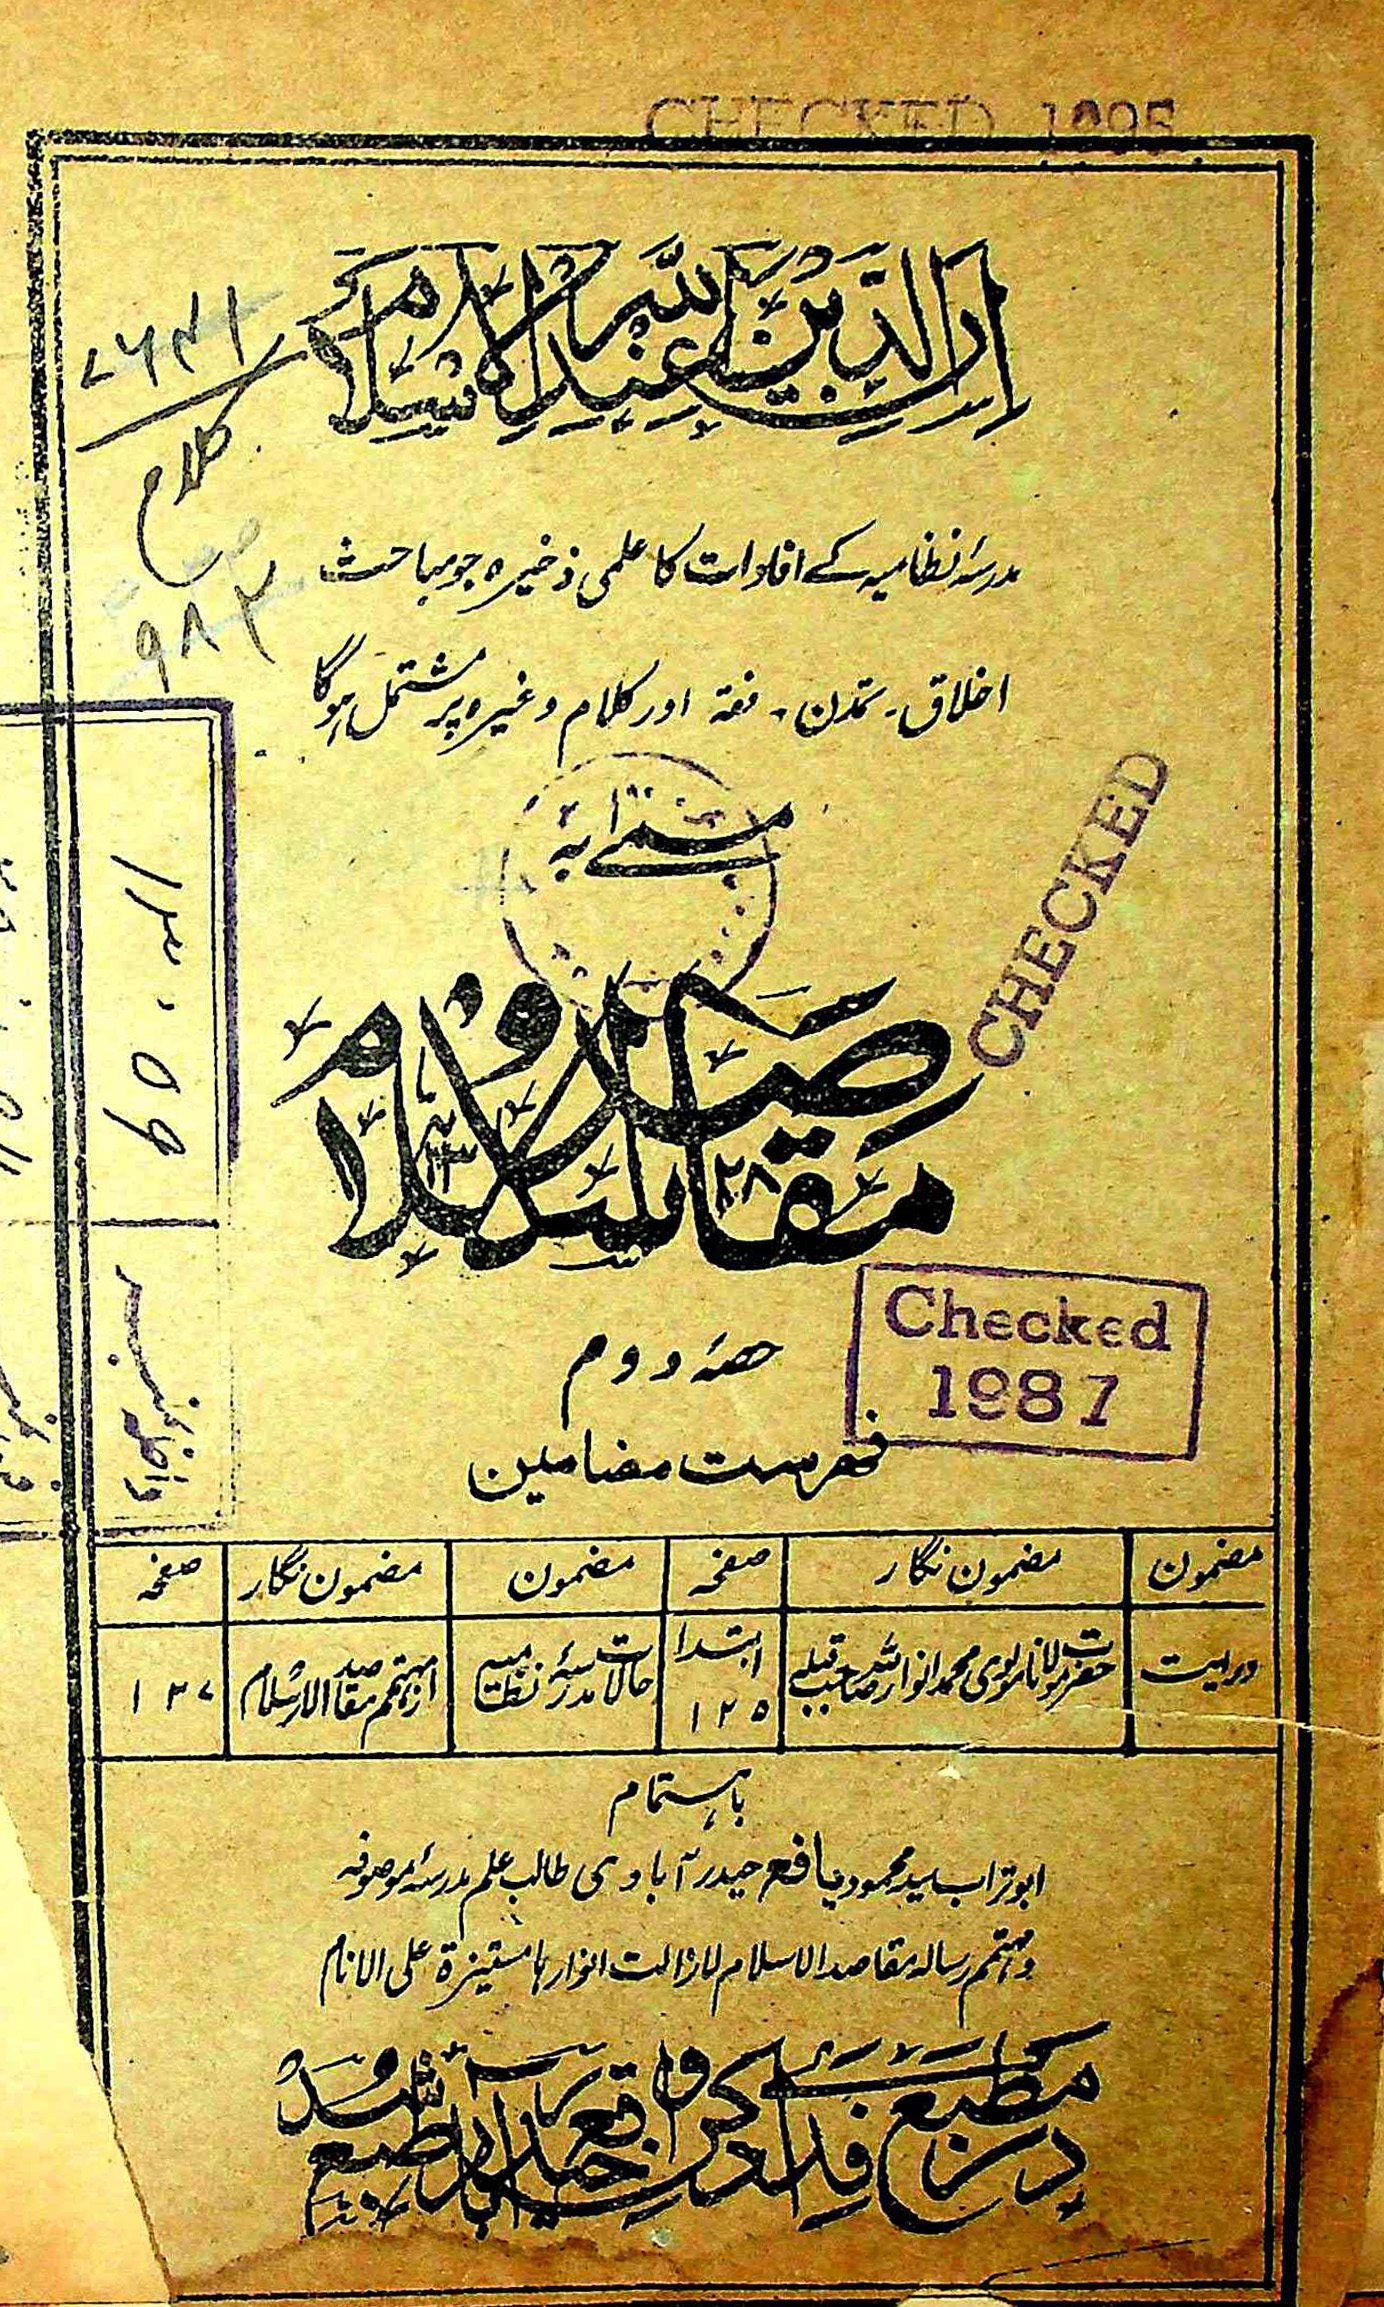 CHECKED 1995
ان الدین عند اللہ الاسلام
۷۶۴۱
کلام
۹۸۲
مدرسۂ نظامیہ کے افادات کا علمی ذخیرہ جو مباحث
اخلاق۔ تمدن۔ فقہ اور کلام وغیرہ پر مشتمل ہوگا
مسمّٰے بہ
CHECKED
مقاصد الاسلام
Checked
1987
حصۂ دوم
فہرست مضامین
مضمون مضمون نگار صفحہ مضمون مضمون نگار صفحہ
درایت حضرت مولانا مولوی محمد انوار اللہ صاحب قبلہ ابتدا ۱۲۵ حالات مدرسۂ نظامیہ از مہتمم مقاصد الاسلام ۱۳۷
داخلہ نمبر
باہتمام
ابوتراب سید محمود یافع حیدرآبادی طالب علم مدرسۂ موصوفہ
ومہتمم رسالہ مقاصد الاسلام لازالت انوارہا مستنیرۃ علی الانام
در مطبع فدائے دکن واقع حیدرآباد طبع شد